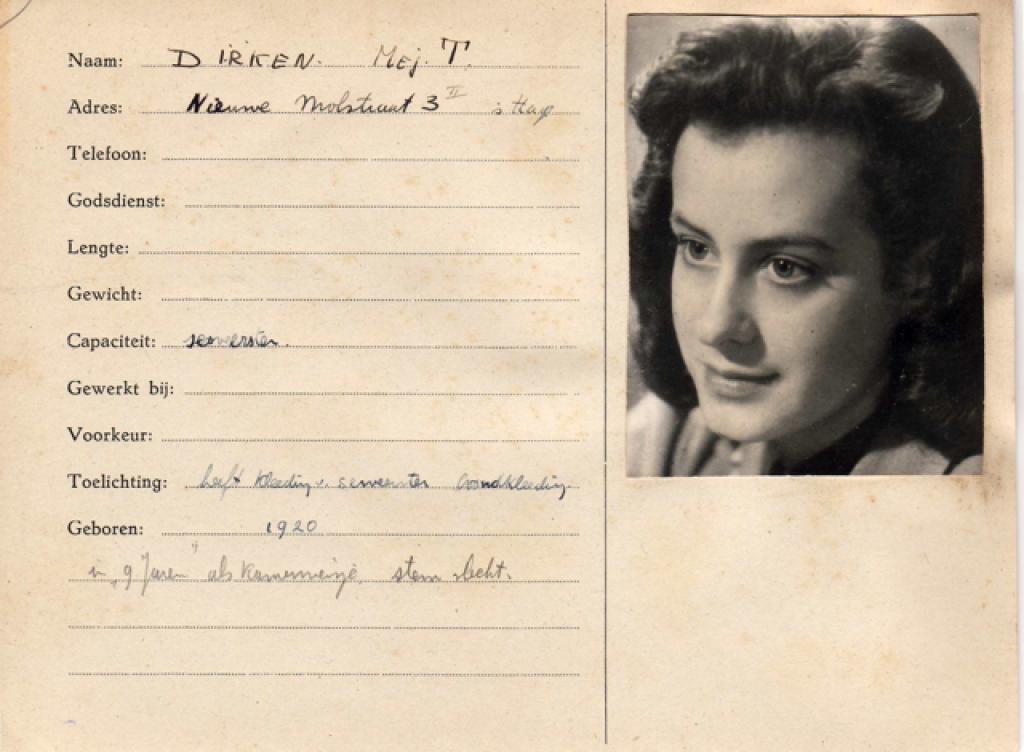 Naam: DIRKEN. Mej. T.
Adres: Nieuwe Molstraat 3 II 's Hage
Telefoon:
Godsdienst:
Lengte:
Gewicht:
Capaciteit: serveerster.
Gewerkt bij:
Voorkeur:
Toelichting: heeft kleeding v. serveerster avondkleeding.
Geboren: 1920
in "9 Jaren" als kamermeisje, stem slecht.